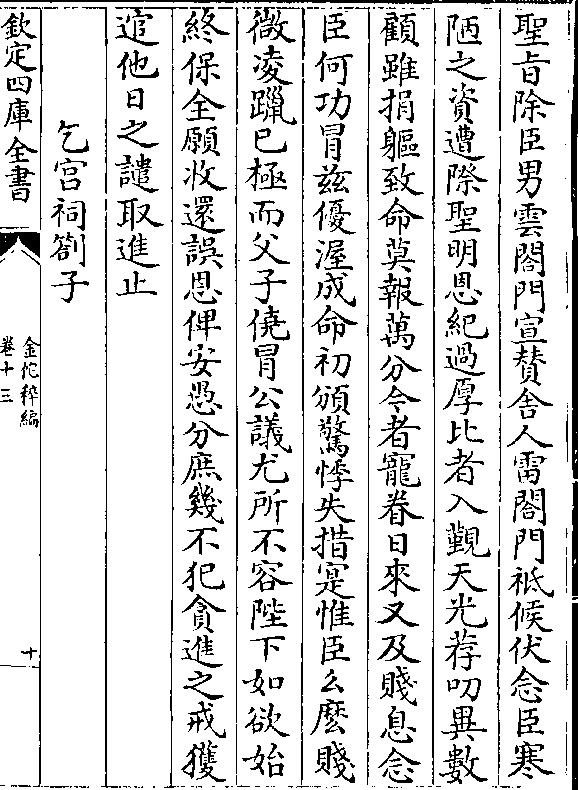 聖旨除臣男雲閤門宣賛舍人雷閤門祗候伏念臣寒
陋之資遭際聖明恩紀過厚比者入覲天光荐叨異數
顧雖捐軀致命莫報萬分今者寵眷日來又及賤息念
臣何功冒兹優渥成命初頒驚悸失措寔惟臣么麽賤
微凌躐已極而父子僥冒公議尤所不容陛下如欲始
終保全願收還誤恩俾安愚分庶幾不犯貪進之戒獲
逭他日之譴取進止
乞宫祠劄子
欽定四庫全書
金佗稡編
卷十三
十